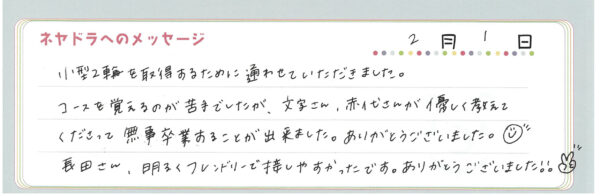 ネヤドラへのメッセージ
2月1日
小型2輪を取得するために通わせていただきました。
コースを覚えるのが苦手でしたが、文字さん、赤代さんが優しく教えて
くださって無事卒業することが出来ました。ありがとうございました。
長田さん、明るくフレンドリーで接しやすかったです。ありがとうございました!!